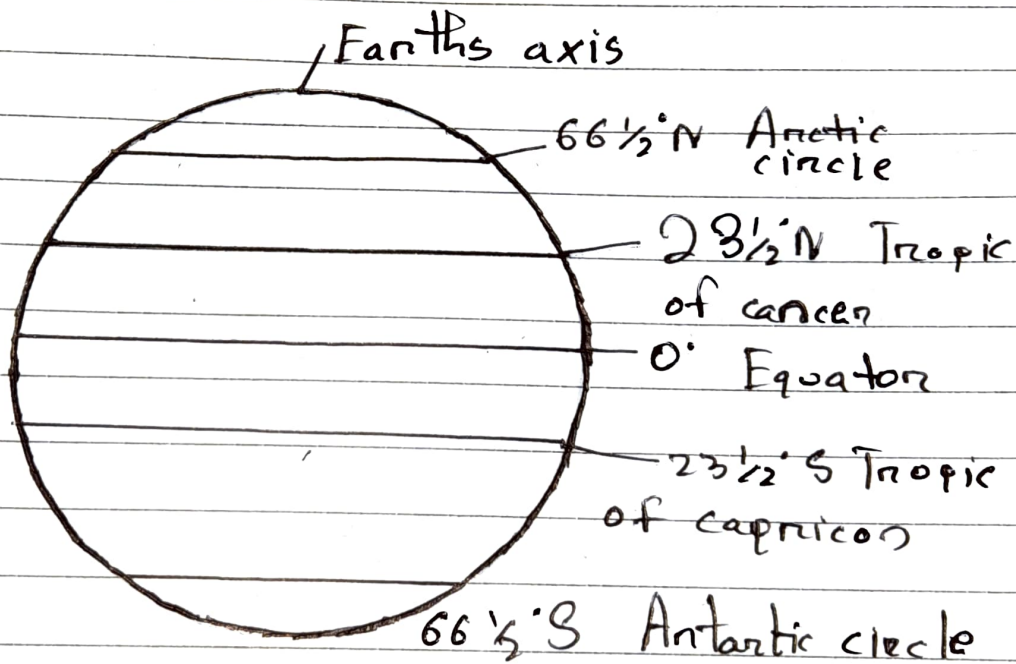 Earths axis
66½°N Arctic
circle
23½°N Tropic
of cancer
0° Equator
23½°S Tropic
of capricon
66½°S Antartic circle